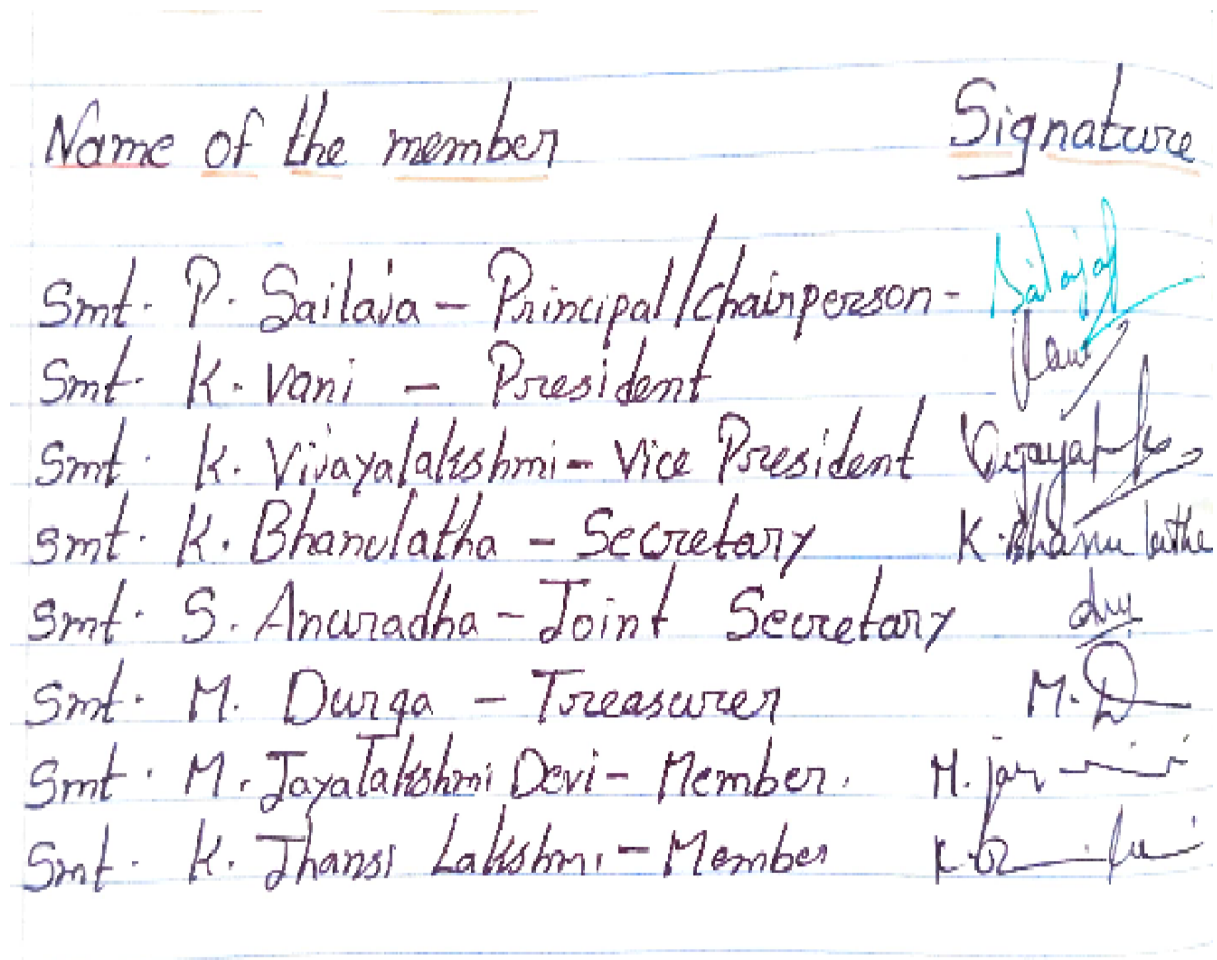 Name of the member Signature
Smt. P. Sailaja - Principal/chairperson - Sailaja
Smt. K. Vani - President Vani
Smt. K. Vijayalakshmi - Vice President
Smt. K. Bhanulatha - Secretary K. Bhanulatha
Smt. S. Anuradha - Joint Secretary
Smt. M. Durga - Treasurer M. D
Smt. M. Jayalakshmi Devi - Member.
Smt. K. Jhansi Lakshmi - Member